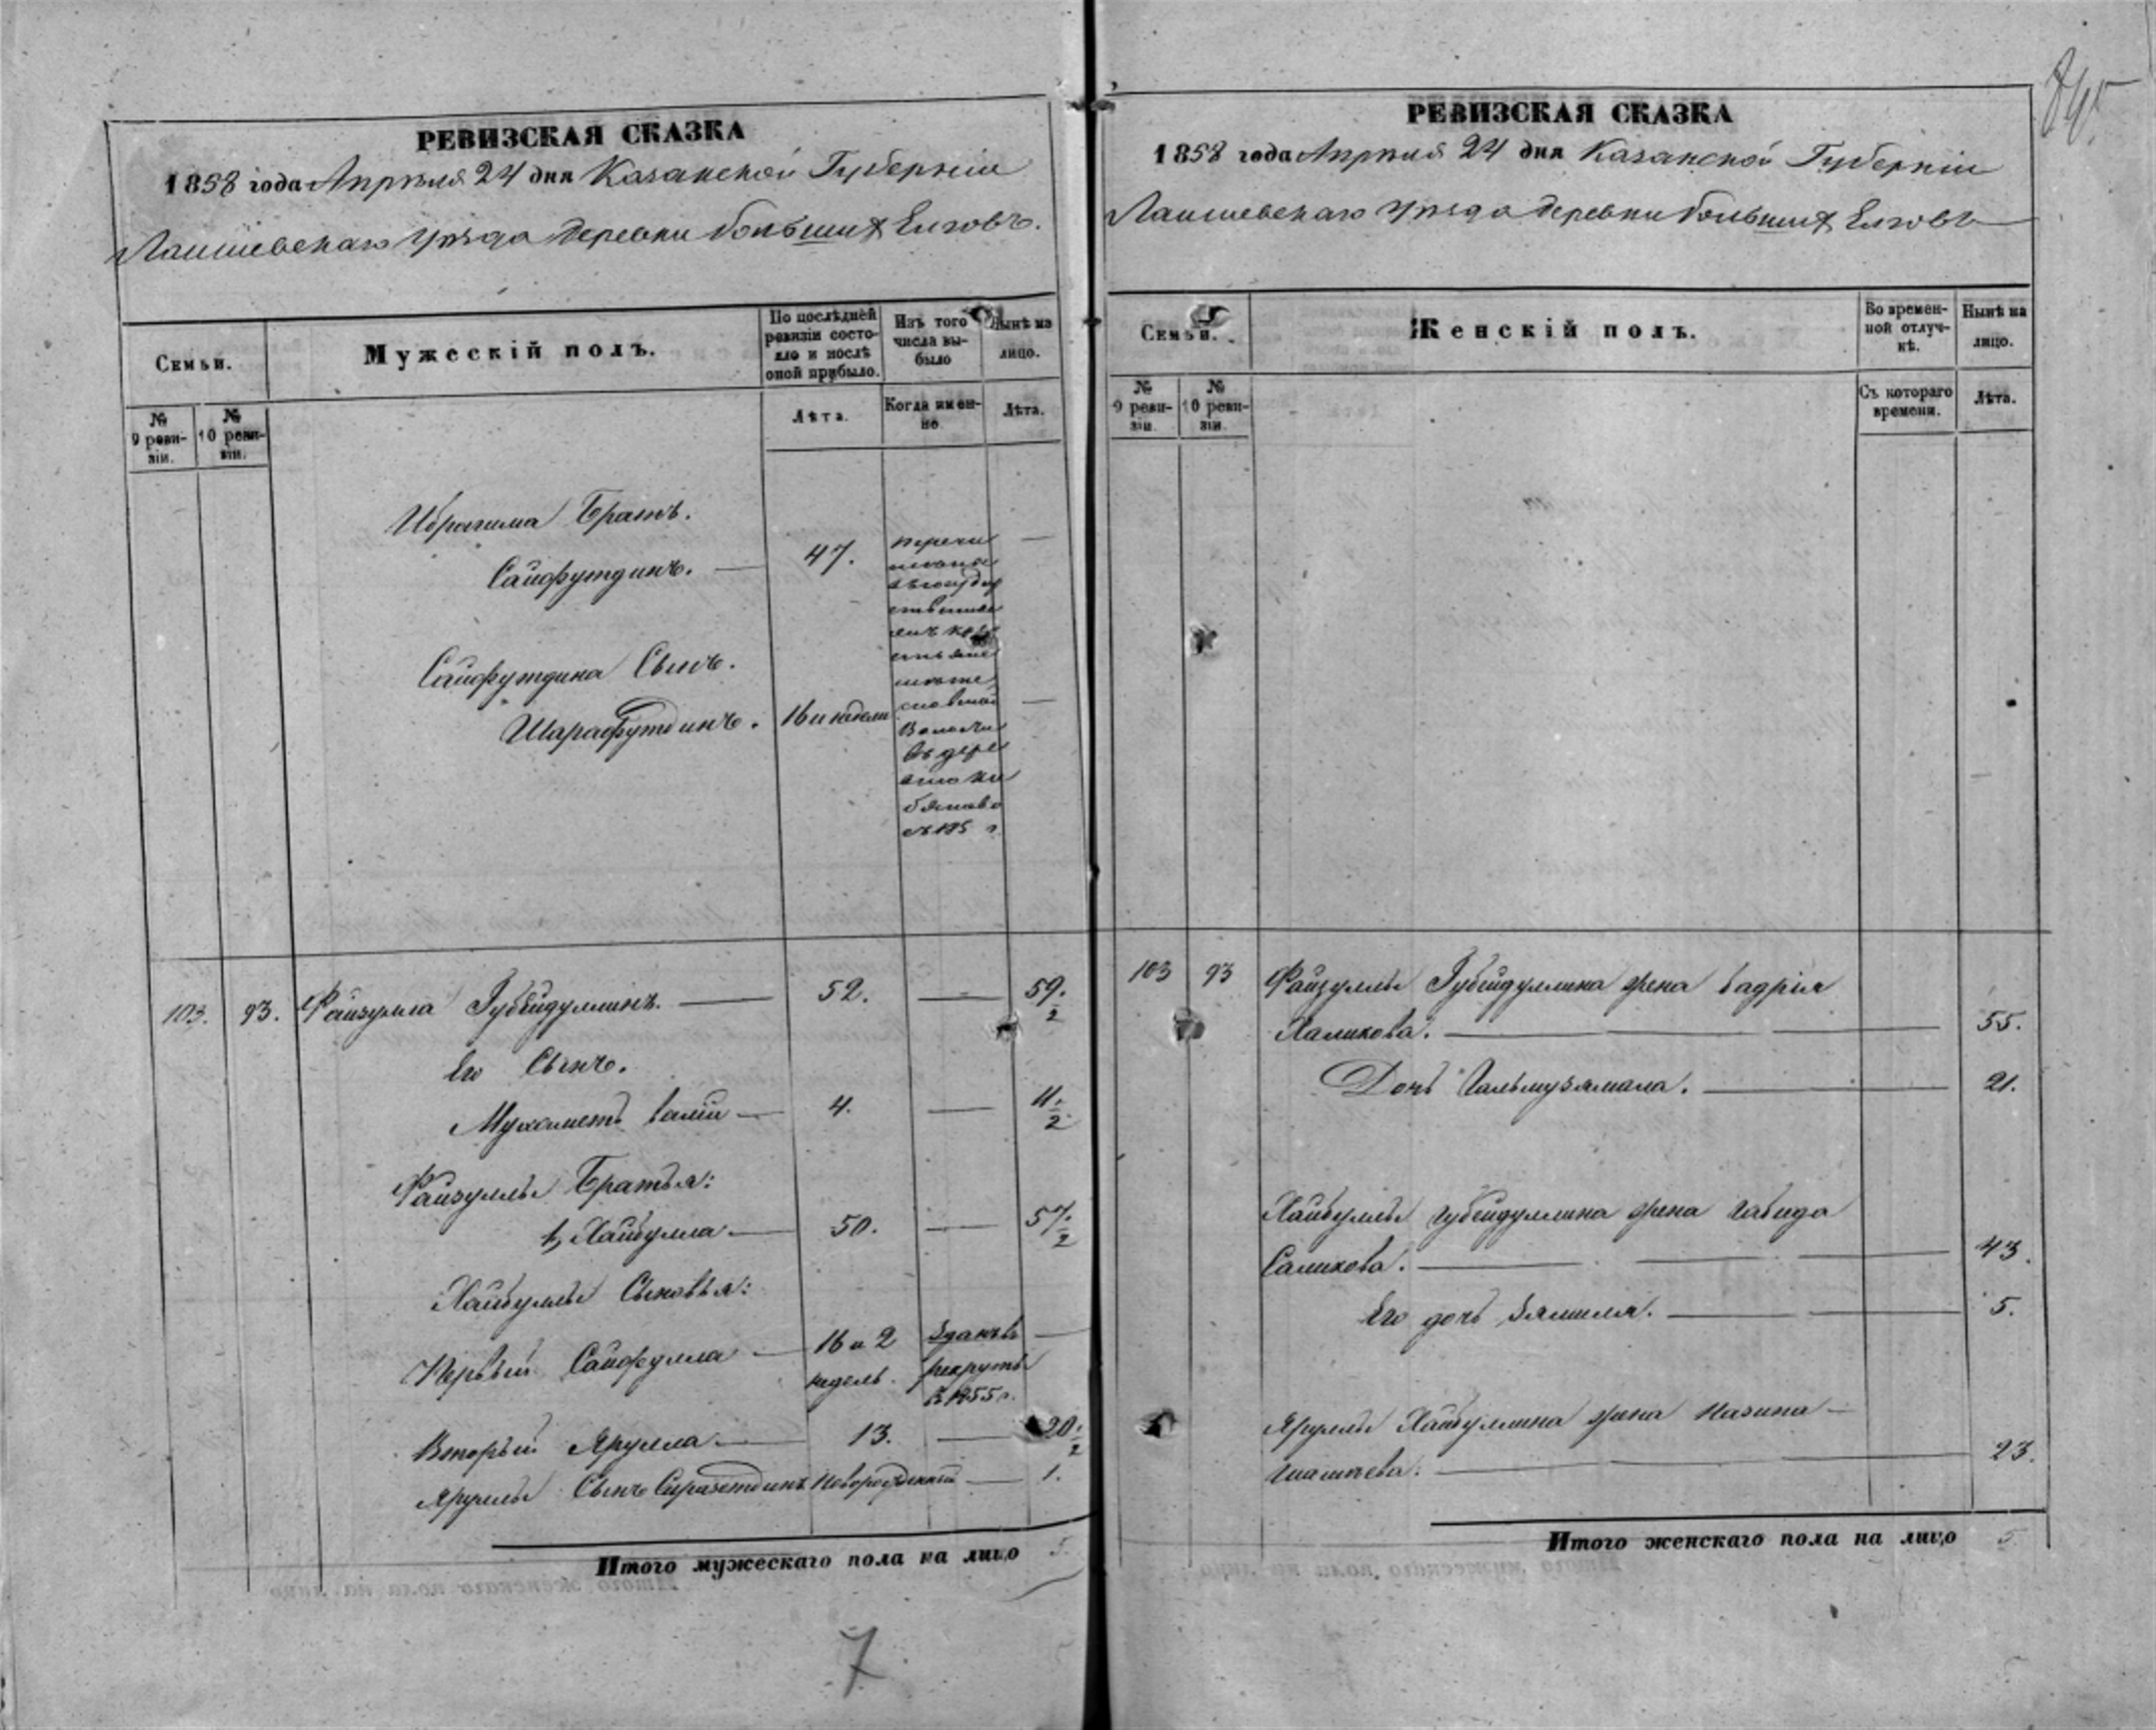 РЕВИЗСКАЯ СКАЗКА
1858 года Апрѣля 24 дня Казанской Губерніи
Лаишевскаго Уѣзда деревни большихъ Елговъ.
Семьи.
Мужескій полъ.
По послѣдней ревизіи состояло и послѣ оной прибыло.
Изъ того числа выбыло
Нынѣ на лицо.
№ 9 ревизіи.
№ 10 ревизіи.
Лѣта.
Когда именно
Лѣта.
Ибрагима Братъ.
Сайфутдинъ. — 47. —
Сайфутдина Сынъ.
Шарафутдинъ. 16 и недели —
Волости
въ дере
103. 93. Файзулла Губейдуллинъ. — 52. — 59 1/2
Его Сынъ.
Мухаметъ валій — 4. — 11 1/2
Файзуллы Братья:
1, Хайбулла — 50. — 57 1/2
Хайбуллы Сыновья:
Первый Сайфулла — 16 и 2 недель. Зданъ въ рекруты въ 1855 г. —
Вторый Ярулла — 13. — 20 1/2
Яруллы Сынъ Сиразетдинъ Новорожденный — 1.
Итого мужескаго пола на лицо 5
7
РЕВИЗСКАЯ СКАЗКА
1858 года Апрѣля 24 дня Казанской Губерніи
Лаишевскаго Уѣзда деревни большихъ Елговъ
Семьи.
Женскій полъ.
Во временной отлучкѣ.
Нынѣ на лицо.
№ 9 ревизіи.
№ 10 ревизіи.
Съ котораго времени.
Лѣта.
103 93 Файзуллы Губейдуллина жена бадрія
Халикова. — 55.
Дочь Гальмузямала. — 21.
Хайбуллы Губейдуллина жена Габида
Салихова. — 43.
Его дочь Зямиля. — 5.
Яруллы Хайбуллина жена Назина —
— 23.
Итого женскаго пола на лицо 5.